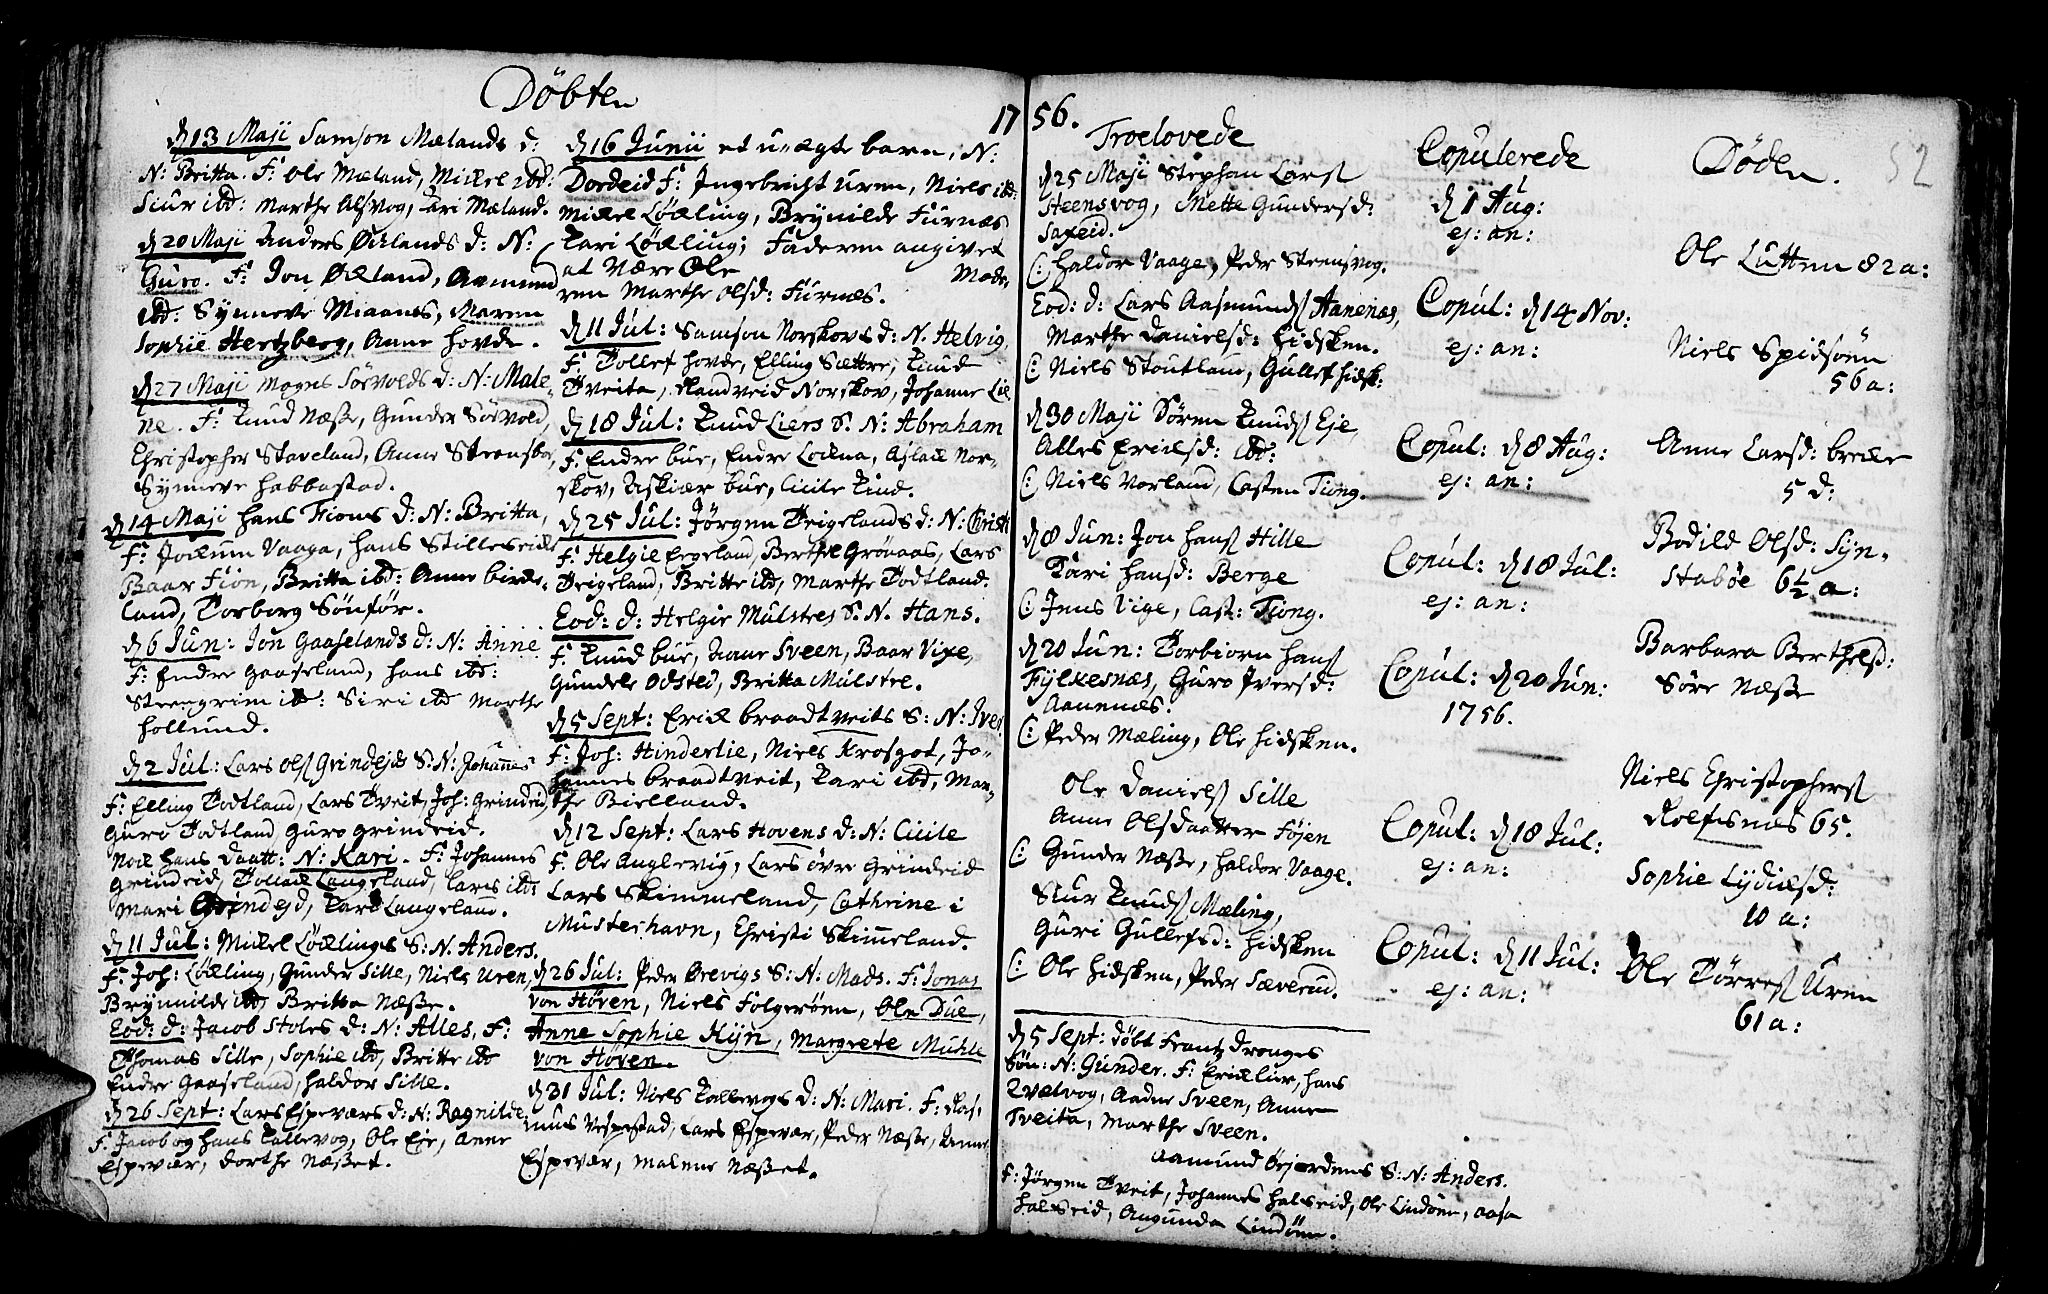 Döbte
17
d 13 Maji Samson Mælands d:
N: Britta. F: Ole Mæland, Mickel ibd:
Siur ibd: Marthe Alsvog, Kari Mæland.
d 20 Maji Anders Øchlands d: N:
Guro. F: Jon Økland, Aamund
ibd: Synneve Miaanes, Maren
Sophie Hertzberg, Anne Hovde.
d 27 Maji Mogns Sörvolds d: N: Male-
ne. F: Knud Næsse, Gunder Sörvold,
Christopher Staveland, Anne Steensbø,
Synneve Habbastad.
d 14 Maji Hans Fions d: N: Britta,
F: Jockum Vaaga, Hans Stilleseid
Baar Fion, Britta ibd: Anne Birke-
land, Torborg Sönför.
d 6 Jun: Jon Gaaselands d: N: Anne
F: Endre Gaaseland, Hans ibd:
Steengrim ibd: Siri ibd Marthe
Hollund.
d 2 Jul: Lars Ols Grindejds S: N: Johannes
F: Elling Todtland, Lars Tveit, Joh: Grindeid,
Guro Todtland, Guro Grindeid.
Nock hans daatt: N: Kari. F: Johannes
Grindeid, Tollack Langeland, Lars ibd:
Mari Grindejd, Kari Langeland.
d 11 Jul: Mickel Löcklinges S: N: Anders.
F: Joh: Löckling, Gunder Sille, Niels Uren,
Brynnilde ibd, Britta Næsse.
Eod: d: Jacob Stoles d: N: Alles, F:
Thomas Sille, Sophie ibd, Britte ibd
Endre Gaaseland, Haldor Sille.
d 26 Sept: Lars Espeværs d: N: Ragnilde,
F: Jacob og Hans Kallevog, Ole Eie, Anne
Espevær, Dorthe Næsset.
d 16 Junii et u-ægte barn, N:
Dordeid F: Ingebricht Uren, Niels ibd:
Mickel Löckling, Brynilde Furnæs
Kari Löckling; Faderen angivet
at være Ole Mode-
ren Marthe Olsd: Furnæs.
d 11 Jul: Samson Norskovs d: N: Helvig,
F: Tollef Hovde, Elling Sættre, Knud
Tveita, Randveid Norskov, Johanne Lie
d 18 Jul: Knud Liers S: N: Abraham
F: Endre Bue, Endre Lockna, Aslack Nor-
skov, Askiær Bue, Cicile Kind.
d 25 Jul: Jörgen Teigelands d: N: Christi
F: Helgie Eegeland, Berthel Grönaas, Lars
Teigeland, Britte ibd, Marthe Todtland.
Eod: d: Helgie Mulstres S: N. Hans.
F: Knud Bue, Sveen, Baar Vige,
Gundele Odsted, Britta Mulstre.
d 5 Sept: Erick Braadtveits S: N: Iver
F: Joh: Hinderlie, Niels Krosgot, Jo-
hannes Braadtveit, Kari ibd, Mar-
the Bielland.
d 12 Sept: Lars Hovens d: N: Cicile
F: Ole Anglevig, Lars övre Grindeid
Lars Skimmeland, Cathrine i
Musterhavn, Christi Skimmeland.
d 26 Jul: Peder Brevigs S: N: Mads. F: Jonas
von Höven, Niels Folgeröen, Ole Due,
Anne Sophie Hijn, Margrete Muhle
von Höven.
d 31 Jul: Niels Kallevogs d: N: Mari. F: Ras-
mus Vespestad, Lars Espevær, Peder Næsse,
Espevær, Malene Næsset.
56.
52
Troelovede
d 25 Maji Stephan Lars
Steensvog, Mette Gundersd:
Saxeid.
C: Haldor Vaage, Peder Steensvog.
Eod: d: Lars Aasmunds Aanenæs,
Marthe Danielsd: Hidsken.
C: Niels Stoutland, Gullef Hidsk:
d 30 Maji Sören Knuds Eje,
Alles Ericksd: ibd:
C: Niels Vorland, Casten Tiong.
d 8 Jun: Jon Hans Hille
Kari Hansd: Berge
C: Jens Vige, Cast: Tiong.
d 20 Jun: Torbiorn Hans
Fylkesnæs, Guro Iversd:
Aanenæs.
C: Peder Mæling, Ole Hidsken.
Ole Daniels Sille
Anne Olsdaatter Föjen
C: Gunder Næsse, Haldor Vaage.
Siur Knuds Mæling,
Guri Gullefsd: Hidsken
C: Ole Hidsken, Peder Sæverud.
d 5 Sept: döbt Frantz Dronges
Sön: N: Gunder. F: Erick Lier, Hans
Qvælvog, Aadne Sveen, Anne
Tveita, Marthe Sveen.
Aamund Örjordens S: N: Anders.
F: Jörgen Tveit, Johannes Halseid, Ole Lindöen, Aasa
Halseid, Angunda Lindöen.
Copulerede
d 1 Aug:
ej: an:
Copul: d 14 Nov:
ej: an:
Copul: d 8 Aug:
ej: an:
Copul: d 18 Jul:
ej: an:
Copul: d 20 Jun:
1756.
Copul: d 18 Jul:
ej: an:
Copul: d 11 Jul:
ej: an:
Döde.
Ole Lutten 82 a:
Niels Spidsöen
56 a:
Anne Larsd: Brecke
5 d:
Bodild Olsd: Syn-
stabøe 6½ a:
Barbara Berthelsd:
Søre Næsse
Niels Christophers
Rolfsnæs 65.
Sophie Lydicksd:
10 a:
Ole Törres Uren
61 a: